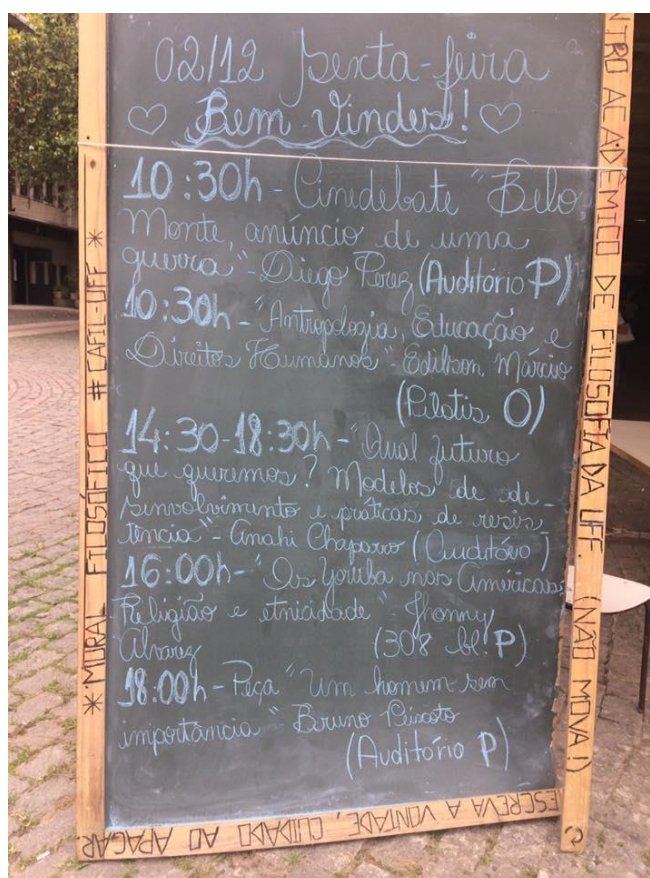 02/12 Sexta-feira
Bem Vindes!
10:30h - Cinedebate "Belo
Monte, anúncio de uma
guerra" - Diego Perez (Auditório P)
10:30h - "Antropologia, Educação e
Direitos Humanos" - Edilson Márcio
(Pilotis O)
14:30-18:30h - "Qual futuro
que queremos? Modelos de de-
senvolvimento e práticas de resis
tência" - Anahi Chaparro (Auditório )
16:00h - "Os Yoruba nas Américas:
Religião e etnicidade" - Jhonny
Alvarez (308 bl. P)
18:00h - Peça "Um homem sem
importância" Bruno Peixoto
(Auditório P)
*MURAL FILOSÓFICO #CAFIL-UFF *
NTRO ACADÊMICO DE FILOSOFIA DA UFF. (NÃO MOVA!)
ESCREVA A VONTADE, CUIDADO AO APAGAR.